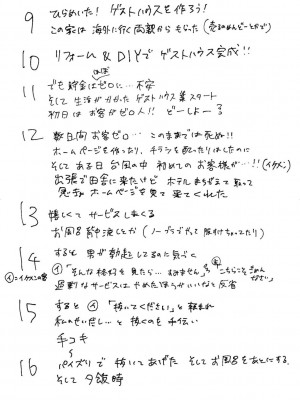 9 ひらめいた! ゲストハウスを作ろう!
この家は海外に行く両親からもらった (売るのめんどーとかで)
10 リフォーム&DIYでゲストハウス完成!!
ほぼ
11 でも貯金はゼロに… 不安
そして生活がかかったゲストハウス業スタート
初日はお客が0人!! どーしよー?
12 数日間お客ゼロ… このままでは死ぬ!!
ホームページを作ったり、チラシを配ったりはしたのに
そしてある日台風の中 初めてのお客様が…!! (イケメン)
出張で田舎に来たけど ホテルまちがえて取って
急きょホームページを見て来てくれた
13 嬉しくてサービスしまくる
お風呂背中流しとか (ノーブラでやって 付けちゃったり)
14 すると男が勃起してるのに気づく
イ=イケメンの客
イ「そんな格好を見たら…すみません」 「こちらこそごめんなさい」
過剰なサービスはやめたほうがいいなと反省
15 すると イ「抜いてください」と頼まれ
私のせいだし…と抜くのを手伝い
手コキ
↓
16 パイズリで抜いてあげた そしてお風呂をあとにする
そして夕飯時